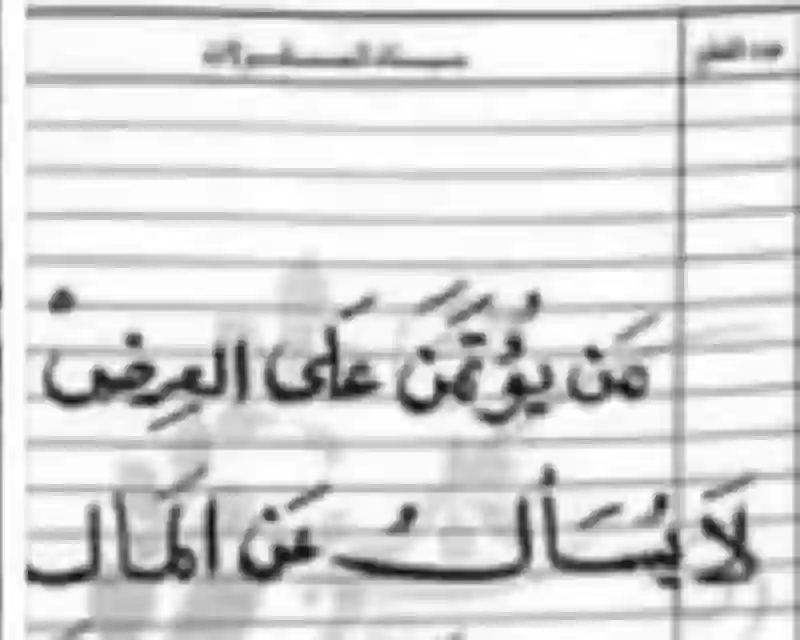 مَن يُؤتَمَنَ عَلى العِرِضْ
لَا يُسَألُ عَن المَال